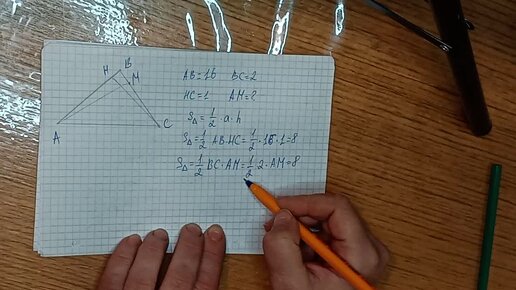 B
H
M
A
C
AB=16 BC=2
HC=1 AM=?
S△=1/2·a·h
S△=1/2 AB·HC=1/2·16·1=8
S△=1/2 BC·AM=1/2·2·AM=8